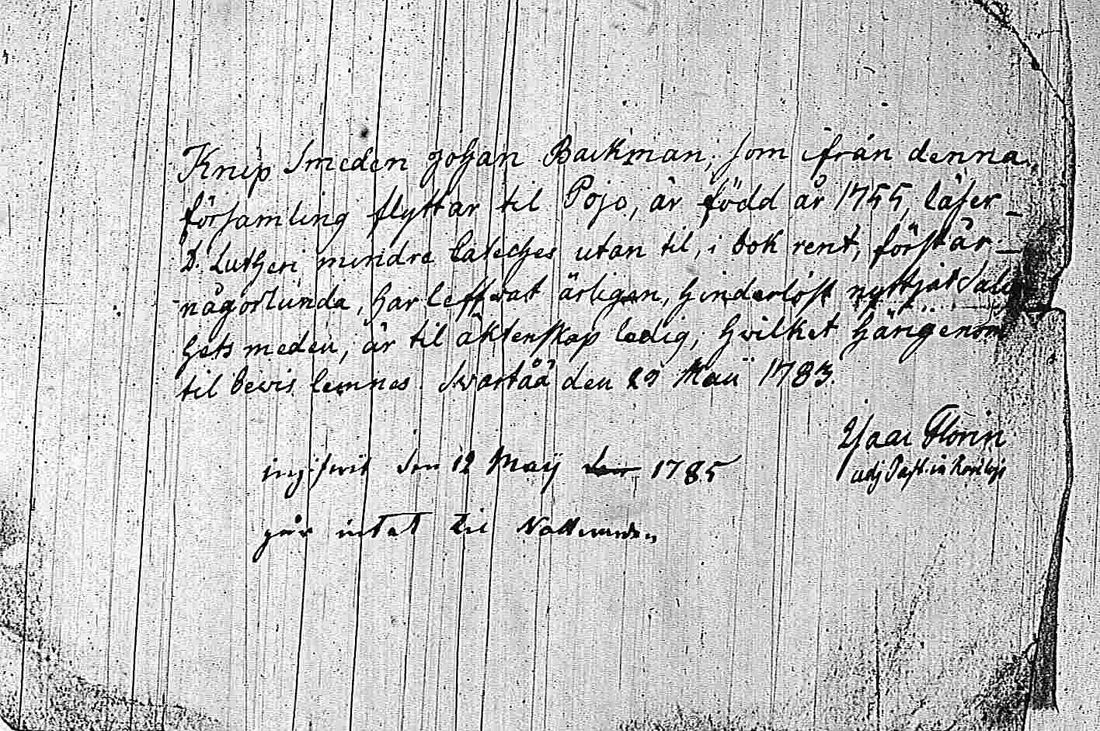 Knip Smeden Johan Backman, som ifrån denna
församling flyttar til Pojo, är född år 1755, läser
D. Lutheri mindre Cateches utan til, i bok rent, förstår
någorlunda, har leffwat ärligen, hinderlöst nyttjat Salig
hets meden, är til äktenskap ledig, hvilket härigenom
til bevis lemnas. Svartåå den 29 Maii 1783.
Isaac Florin
adj. Past. in
ingifwit den 12 Maij 1785
går intet til